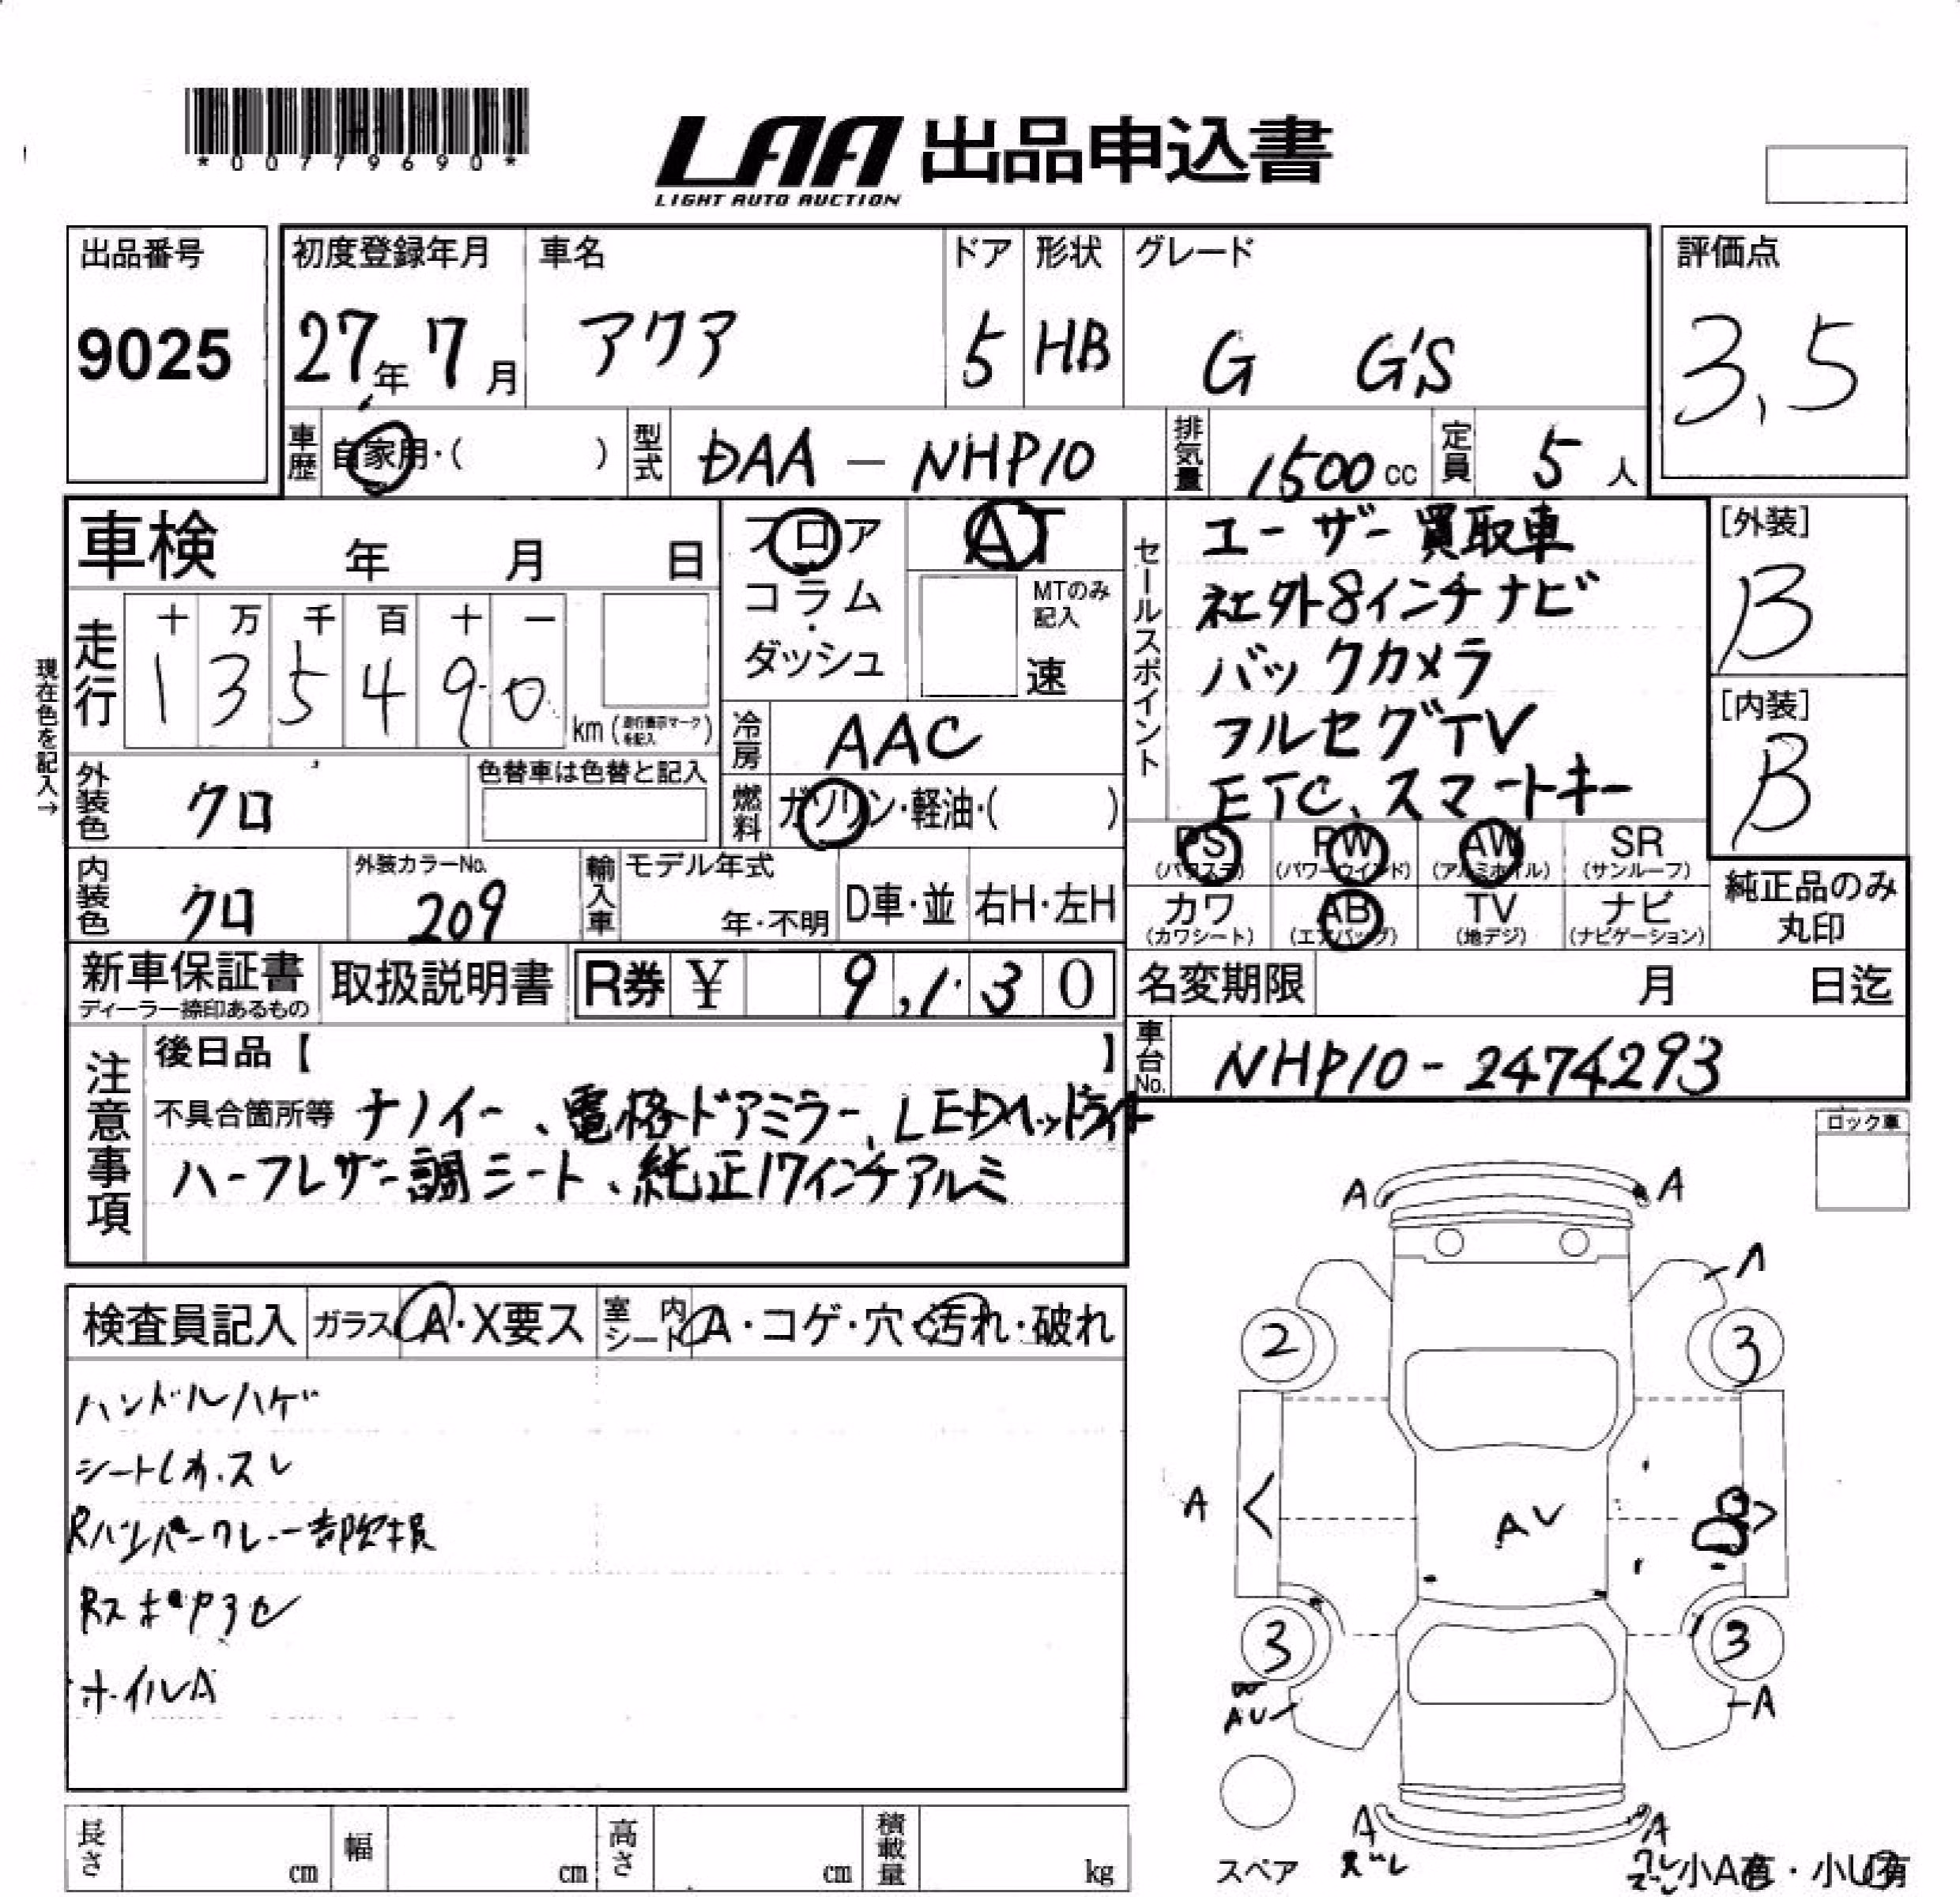 *00779690*
LAA 出品申込書
LIGHT AUTO AUCTION
出品番号
9025
初度登録年月
27年 7月
車名
アクア
ドア
5
形状
HB
グレード
G G'S
評価点
3,5
車歴 自家用・( )
型式 DAA - NHP10
排気量 1500 cc
定員 5 人
車検 年 月 日
フロア
コラム
・
ダッシュ
AT
MTのみ
記入
速
セールスポイント
ユーザー買取車
社外8インチナビ
バックカメラ
フルセグTV
ETC、スマートキー
[外装]
B
[内装]
B
現在色を記入→
走行
十 万 千 百 十 一
1 3 5 4 9 0
km (走行表示マークを記入)
冷房 AAC
外装色 クロ
色替車は色替と記入
燃料 ガソリン・軽油・( )
PS (パワステ)
PW (パワーウインド)
AW (アルミホイル)
SR (サンルーフ)
カワ (カワシート)
AB (エアバッグ)
TV (地デジ)
ナビ (ナビゲーション)
純正品のみ
丸印
内装色 クロ
外装カラーNo.
209
輸入車
モデル年式
年・不明
D車・並
右H・左H
新車保証書
ディーラー捺印あるもの
取扱説明書
R券 ¥ 9,130
名変期限 月 日迄
車台No. NHP10-2474293
注意事項
後日品【 】
不具合箇所等 ナノイー、電格ドアミラー、LEDヘッドライト
ハーフレザー調シート、純正17インチアルミ
ロック車
検査員記入
ガラス A・X要ス
室内シート A・コゲ・穴・汚れ・破れ
ハンドルハゲ
シートしみ、スレ
Rバンパーワレ、一部欠損
ホイルA
A A
A
2 3
A
AV
3 3
AU
A
A A
スペア
ズレ
ワレ
小A有・小U有
長さ cm
幅 cm
高さ cm
積載量 kg